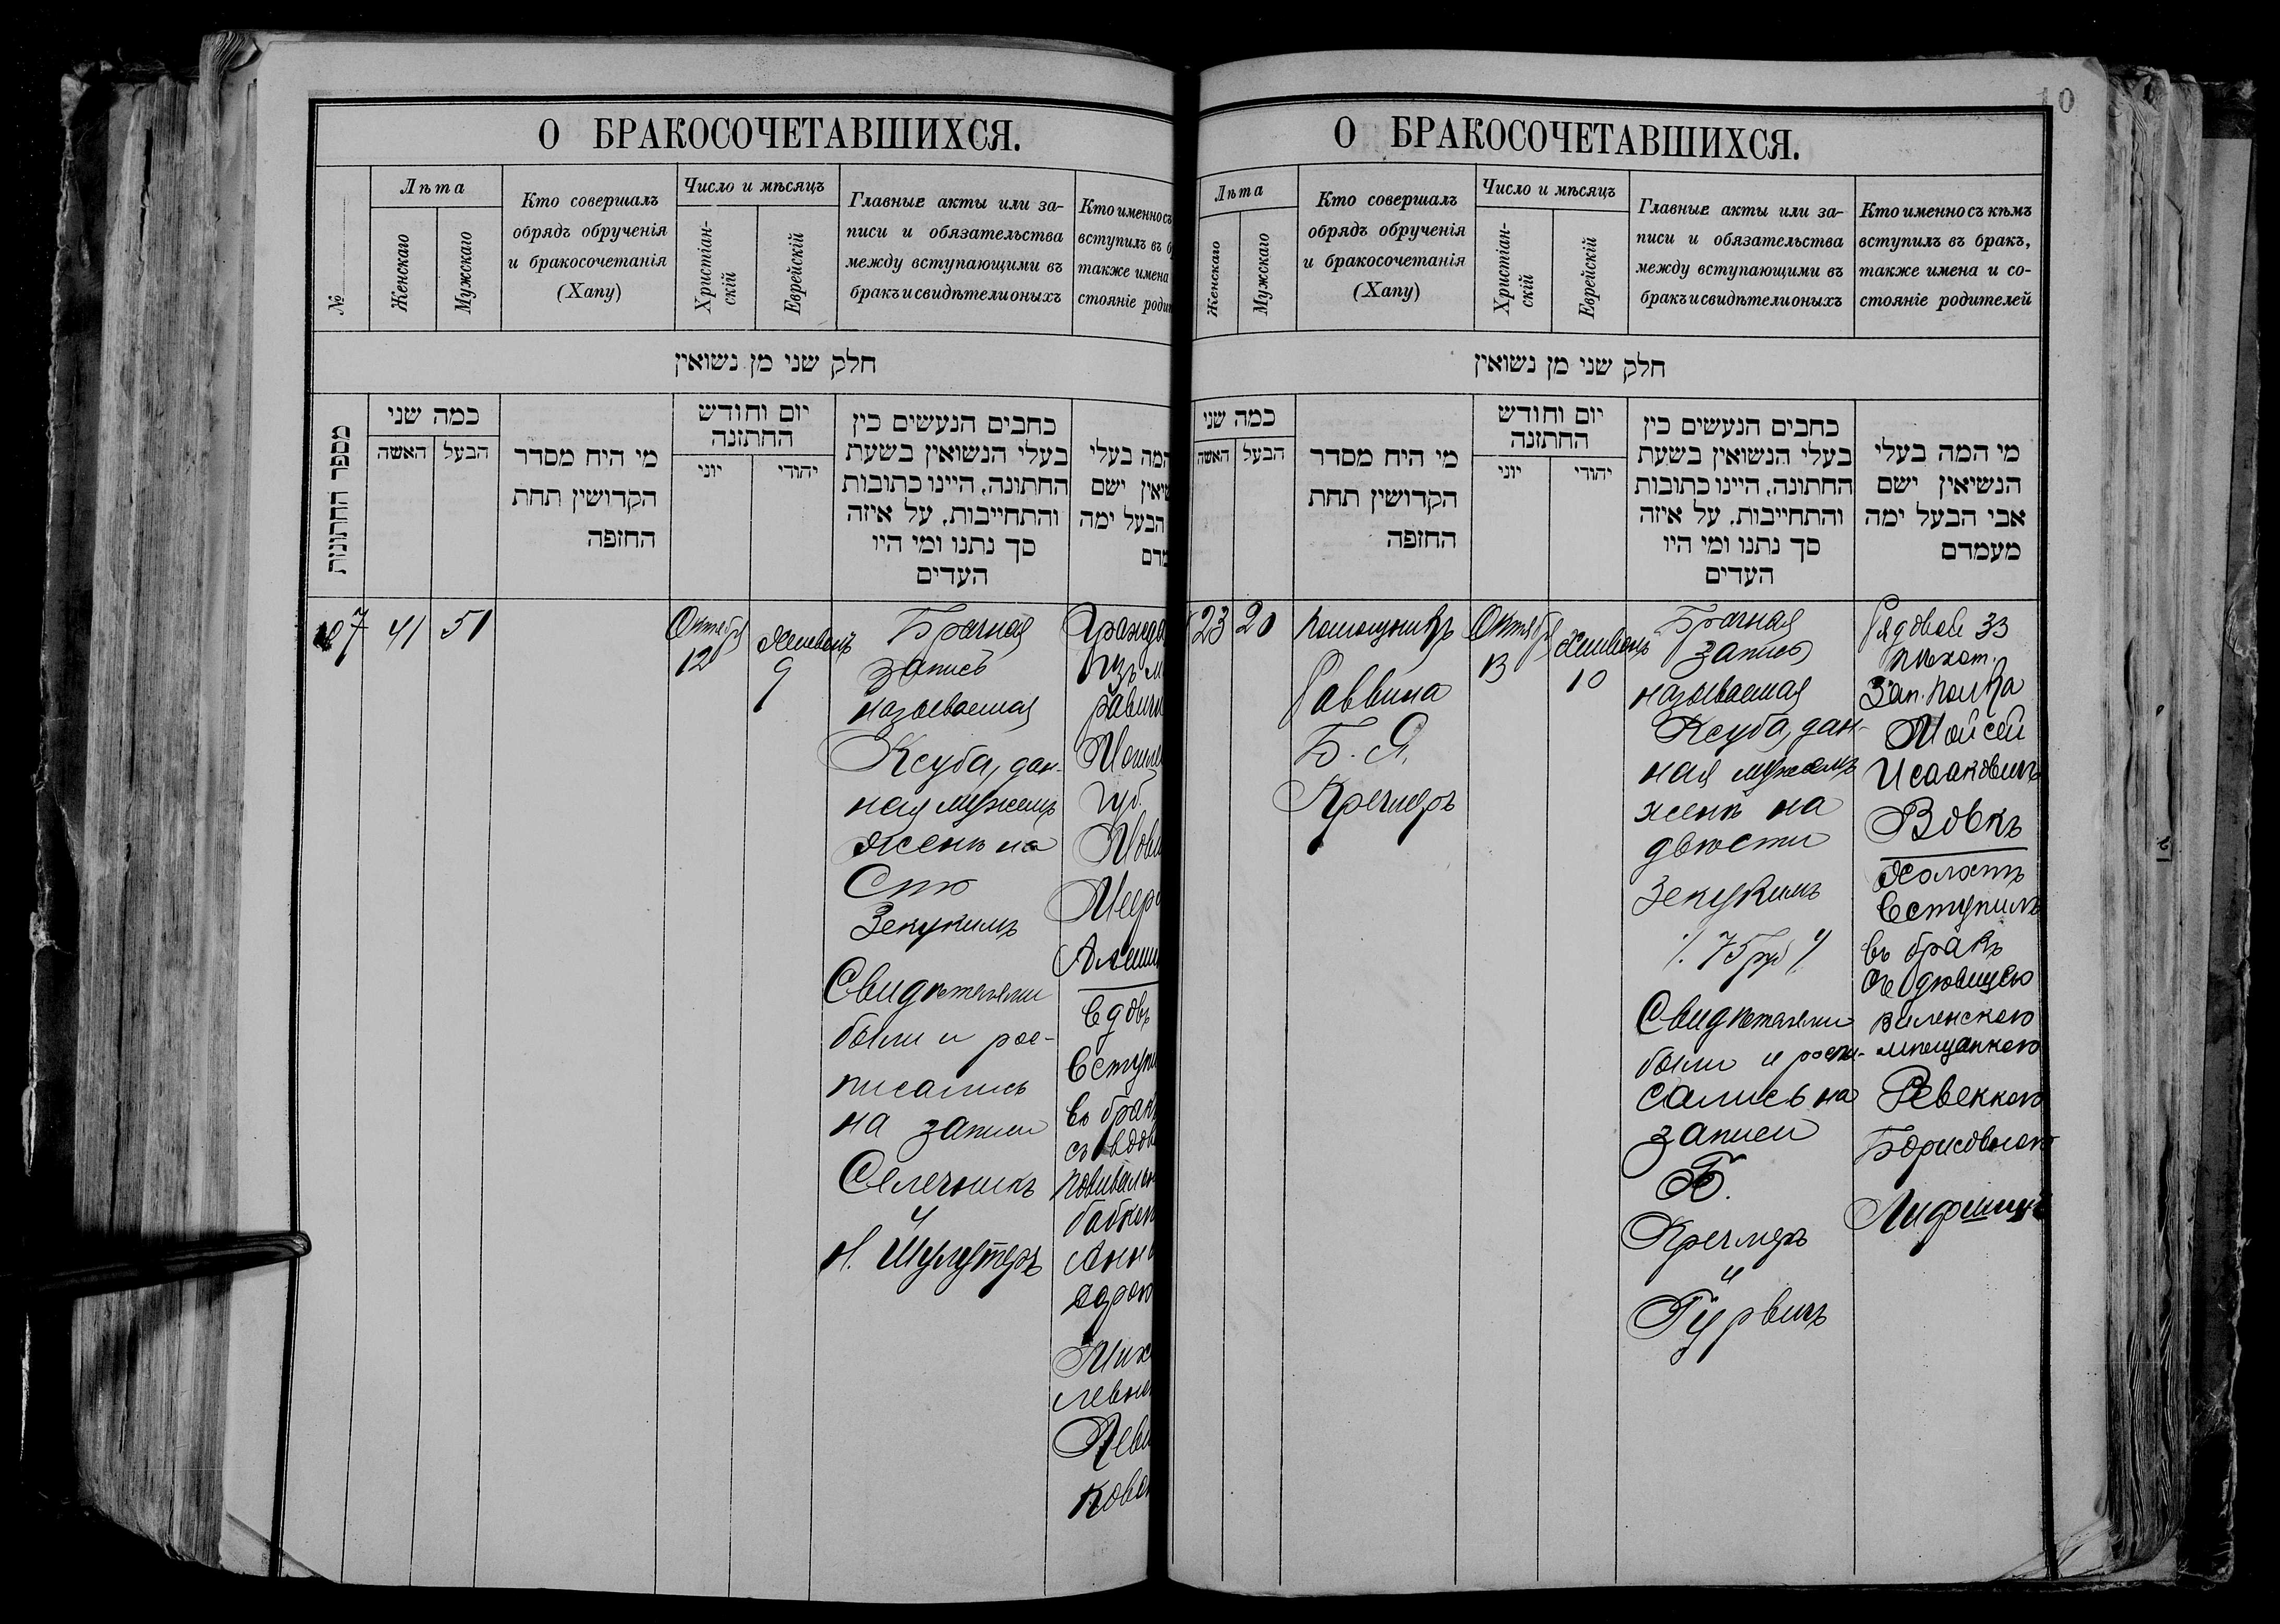 О БРАКОСОЧЕТАВШИХСЯ.
№
Лѣта
Женскаго
Мужскаго
Кто совершалъ
обрядъ обрученія
и бракосочетанія
(Хапу)
Число и мѣсяцъ
Христіан-
скій
Еврейскій
Главные акты или за-
писи и обязательства
между вступающими въ
бракъ и свидѣтели оныхъ
Кто именно съ
вступилъ въ б
также имена
стояніе роди
חלק שני מן נשואין
מספר החתונות
כמה שני
האשה
הבעל
מי היח מסדר
הקדושין תחת
החופה
יום וחודש
החתונה
יוני
יהודי
כתבים הנעשים בין
בעלי הנשואין בשעת
החתונה, היינו כתובות
והתחייבות, על איזה
סך נתנו ומי היו
העדים
המה בעלי
שיאין ישם
הבעל ימה
מדם
107
41
51
Октября
12
Хешванъ
9
Брачная
запись
называемая
Ксуба, дан-
ная мужемъ
женѣ на
Сто
Зекукимъ
Свидѣтели
были и рос-
писались
на записи
Селечникъ
и
Н. Шулутеръ
Гражда
изъ м
Могиле
губ.
Мовш
Меер
Алеши
вдовъ
вступи
въ брак
съ вдов
повиваль
бабкою
Анн
Миха
левн
Леви
Кова
10
О БРАКОСОЧЕТАВШИХСЯ.
Лѣта
Женскаго
Мужскаго
Кто совершалъ
обрядъ обрученія
и бракосочетанія
(Хапу)
Число и мѣсяцъ
Христіан-
скій
Еврейскій
Главные акты или за-
писи и обязательства
между вступающими въ
бракъ и свидѣтели оныхъ
Кто именно съ кѣмъ
вступилъ въ бракъ,
также имена и со-
стояніе родителей
חלק שני מן נשואין
כמה שני
האשה
הבעל
מי היח מסדר
הקדושין תחת
החופה
יום וחודש
החתונה
יוני
יהודי
כתבים הנעשים בין
בעלי הנשואין בשעת
החתונה, היינו כתובות
והתחייבות, על איזה
סך נתנו ומי היו
העדים
מי המה בעלי
הנשיאין ישם
אבי הבעל ימה
מעמדם
23
20
Помощникъ
Раввина
Б. Я.
Кречмеръ
Октября
13
Хешванъ
10
Брачная
запись
называемая
Ксуба, дан-
ная мужемъ
женѣ на
двѣсти
Зекукимъ
/. 75 руб /.
Свидѣтели
были и роспи-
сались на
записи
Б.
Кречмеръ
и
Гурвичъ
Рядовой 33
пѣхот.
Зап. полка
Мойсей
Исааковичъ
Вовкъ
холостъ
вступилъ
въ бракъ
съ дѣвицею
виленскою
мѣщанкою
Ревеккою
Борисовною
Лифшицъ